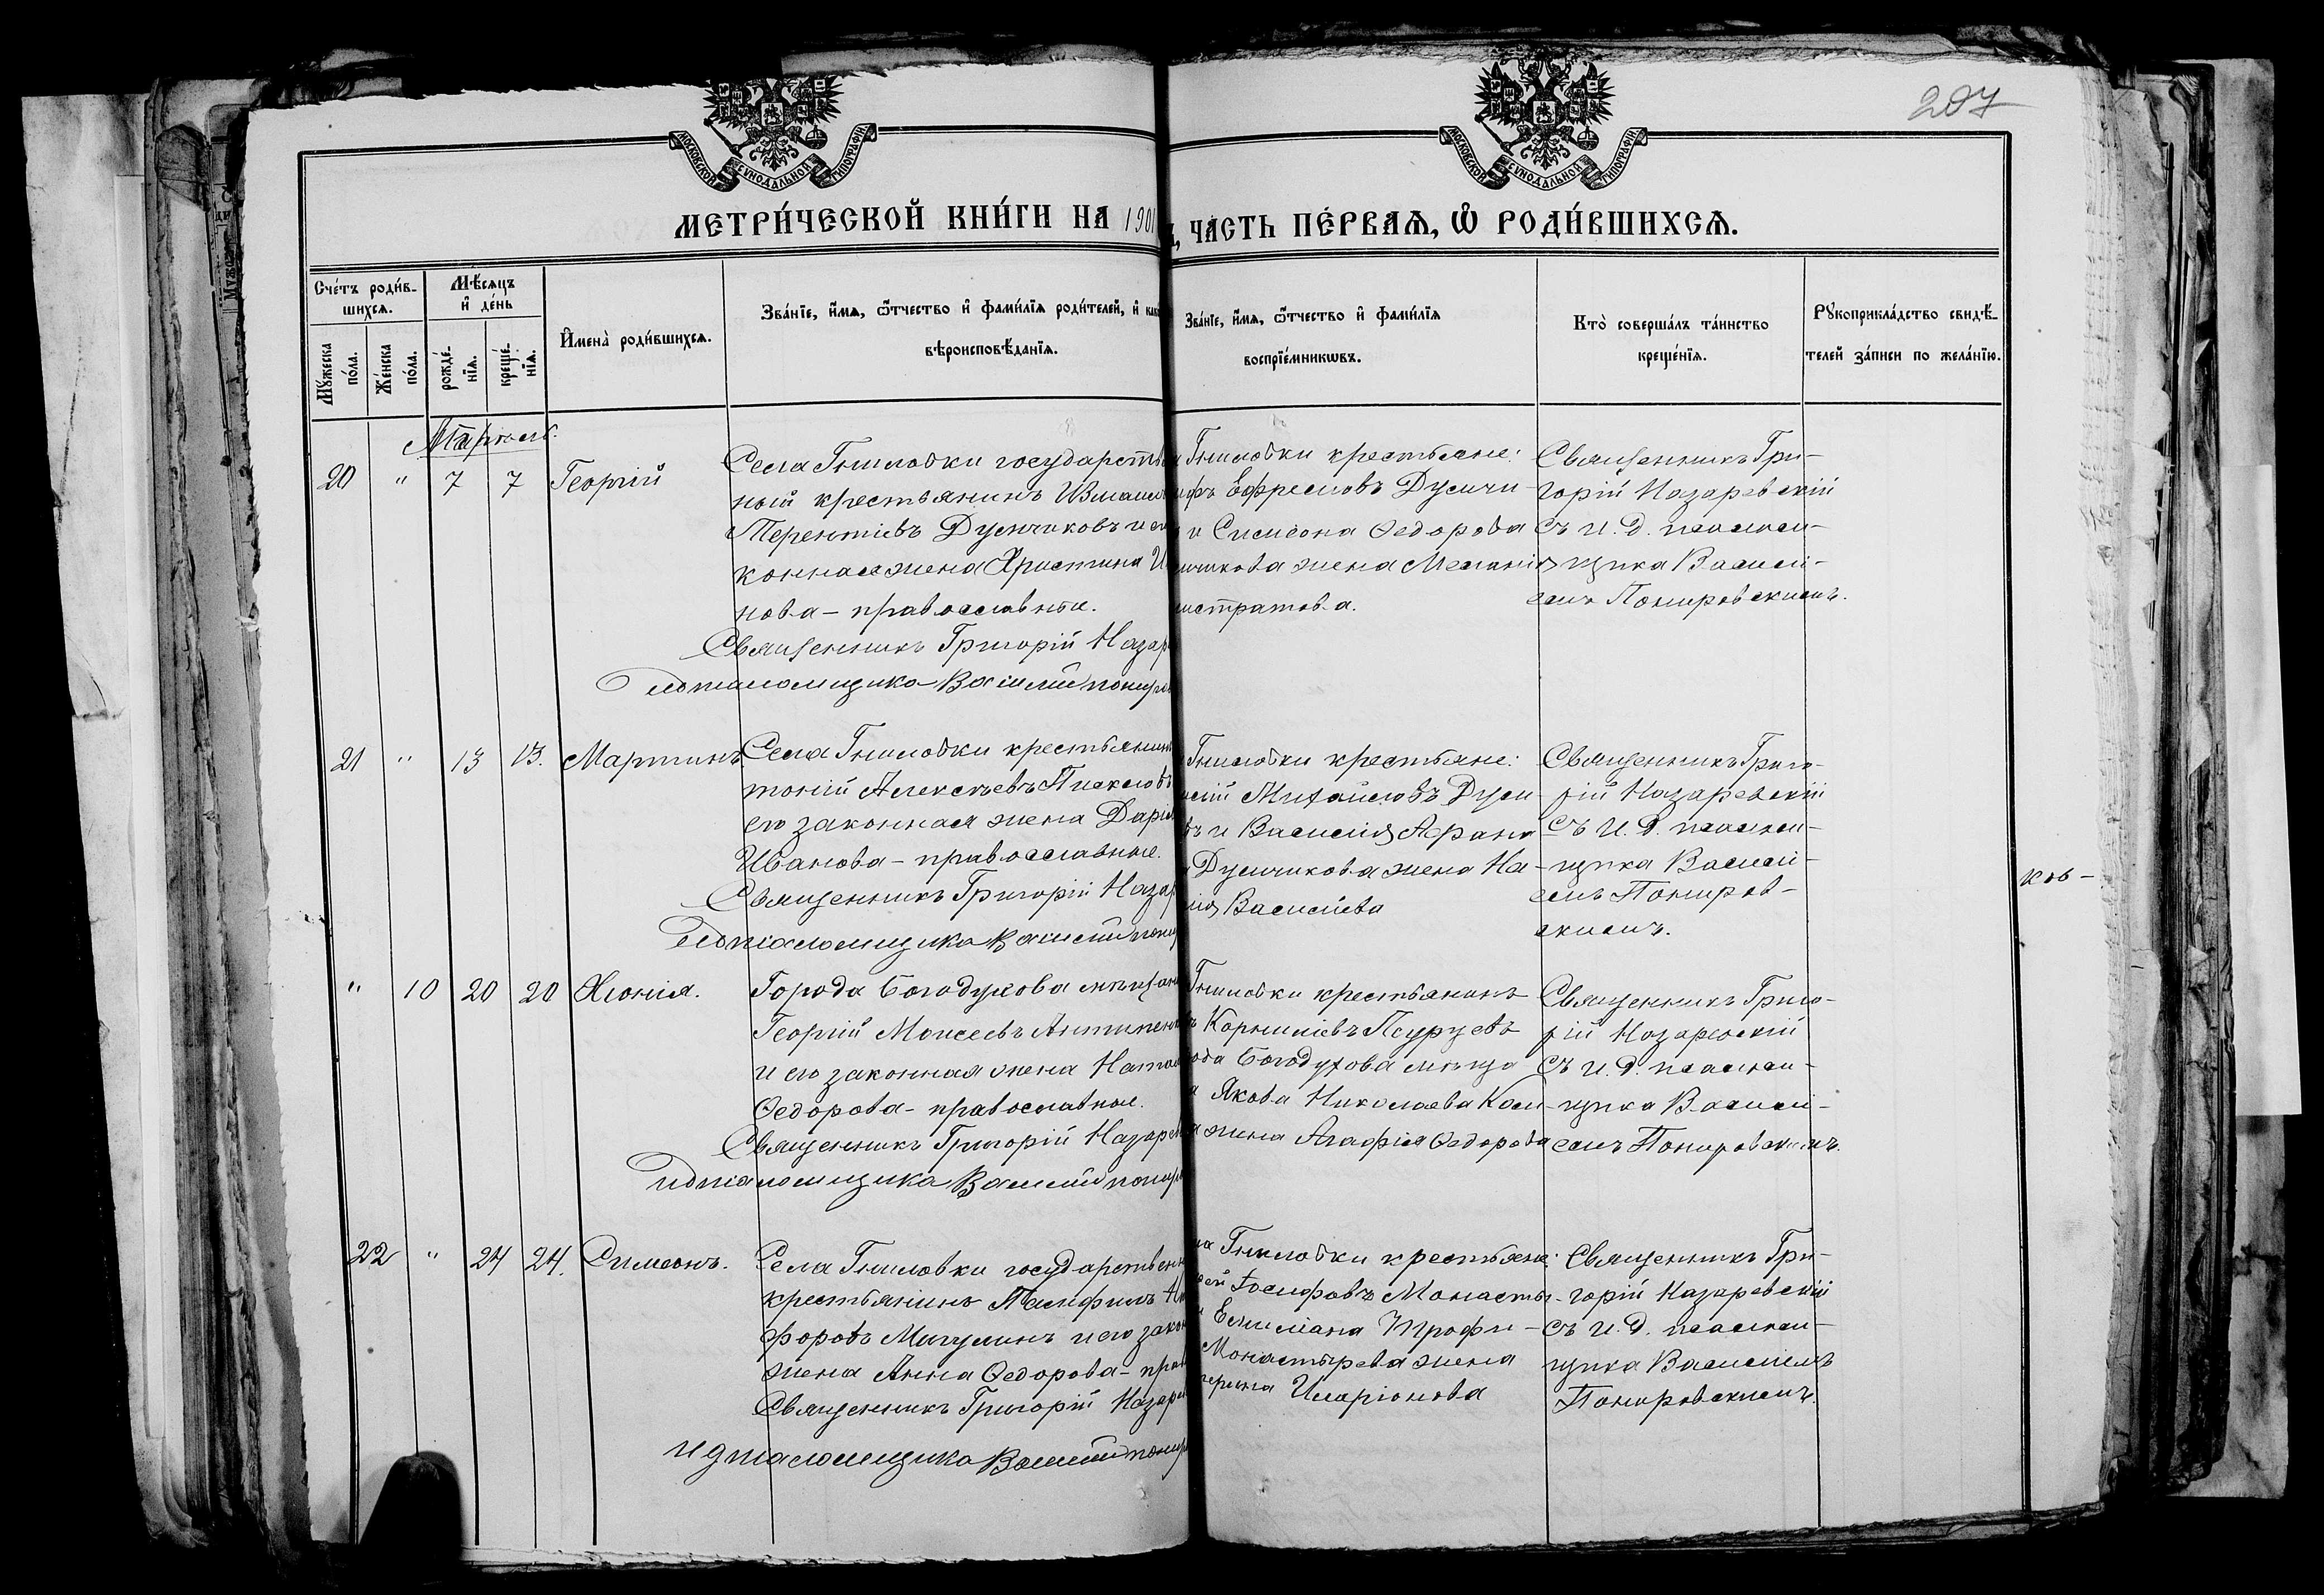 207
МОСКОВСКОЙ СѴНОДАЛЬНОЙ ТИПОГРАФІИ
МОСКОВСКОЙ СѴНОДАЛЬНОЙ ТИПОГРАФІИ
МЕТРИ́ЧЕСКОЙ КНИ́ГИ НА 1901
ЧА́СТЬ ПЕ́РВАѦ, Ѡ РОДИ́ВШИХСѦ.
Сче́тъ роди́в-
шихсѧ.
Мꙋ́жеска
по́ла.
Же́нска
по́ла.
Мѣ́сѧцъ
и҆ де́нь
рожде́-
нїѧ.
креще́-
нїѧ.
И҆мена̀ роди́вшихсѧ.
Зва́нїе, и҆́мѧ, ѻ҆́тчество и҆ фами́лїѧ роди́телей, и҆
вѣроисповѣ́данїѧ.
Зва́нїе, и҆́мѧ, ѻ҆́тчество и҆ фами́лїѧ
воспрїе́мникѡвъ.
Кто̀ соверша́лъ та́инство
креще́нїѧ.
Рꙋкоприкла́дство свидѣ́-
телей за́писи по жела́нїю.
Мартъ.
20 " 7 7 Георгій
Села Гниловки государствен
ный крестьянинъ Измаилъ
Терентіевъ Дугинчиковъ и его
конная жена Христина И
нова - православные.
Священникъ Григорій Назар
псаломщика Василій Понир
Гниловки крестьяне:
Ефремовъ
и Симеона Ѳедорова
жена Меланія
истратова.
Священникъ Гри-
горій Назаревскій
съ И. Д. псалом-
щика Василі-
емъ Понировскимъ.
21 " 13 13. Мартинъ
Села Гниловки крестьянинъ
тоній Алексѣевъ
его законная жена Дарія
Иванова - православные.
Священникъ Григорій Назар
псаломщика Василій Пони
Гниловки крестьяне:
Михайловъ
и Василія
жена На-
лія Василіева
Священникъ Григо-
рій Назаревскій
съ И. Д. псалом-
щика Василі-
емъ Пониров-
скимъ.
ков-
" 10 20 20 Хіонія.
Города Богодухова мѣщан
Георгій Моисеевъ Антипен
и его законная жена Натал
Ѳедорова - православные.
Священникъ Григорій Назарев
псаломщика Василій Понир
Гниловки крестьянинъ
Корниліевъ
ода Богодухова мѣща
Якова Николаева Кам-
жена Агафія Ѳедорова
Священникъ Григо-
рій Назаревскій
съ И. Д. псалом-
щика Василі-
емъ Понировскимъ.
22 " 24 24. Симеонъ.
Села Гниловки государственн
крестьянинъ Памфилъ Ни
форовъ Мигулинъ и его закон
жена Анна Ѳедорова - прав
Священникъ Григорій Назарев
И Д псаломщика Василій Понир
Гниловки крестьяне:
Іосифовъ Монасты-
Емиліана Трофи-
Монастырева жена
терина Иларіонова
Священникъ Гри-
горій Назаревскій
съ И. Д. псалом-
щика Василіемъ
Понировскимъ.